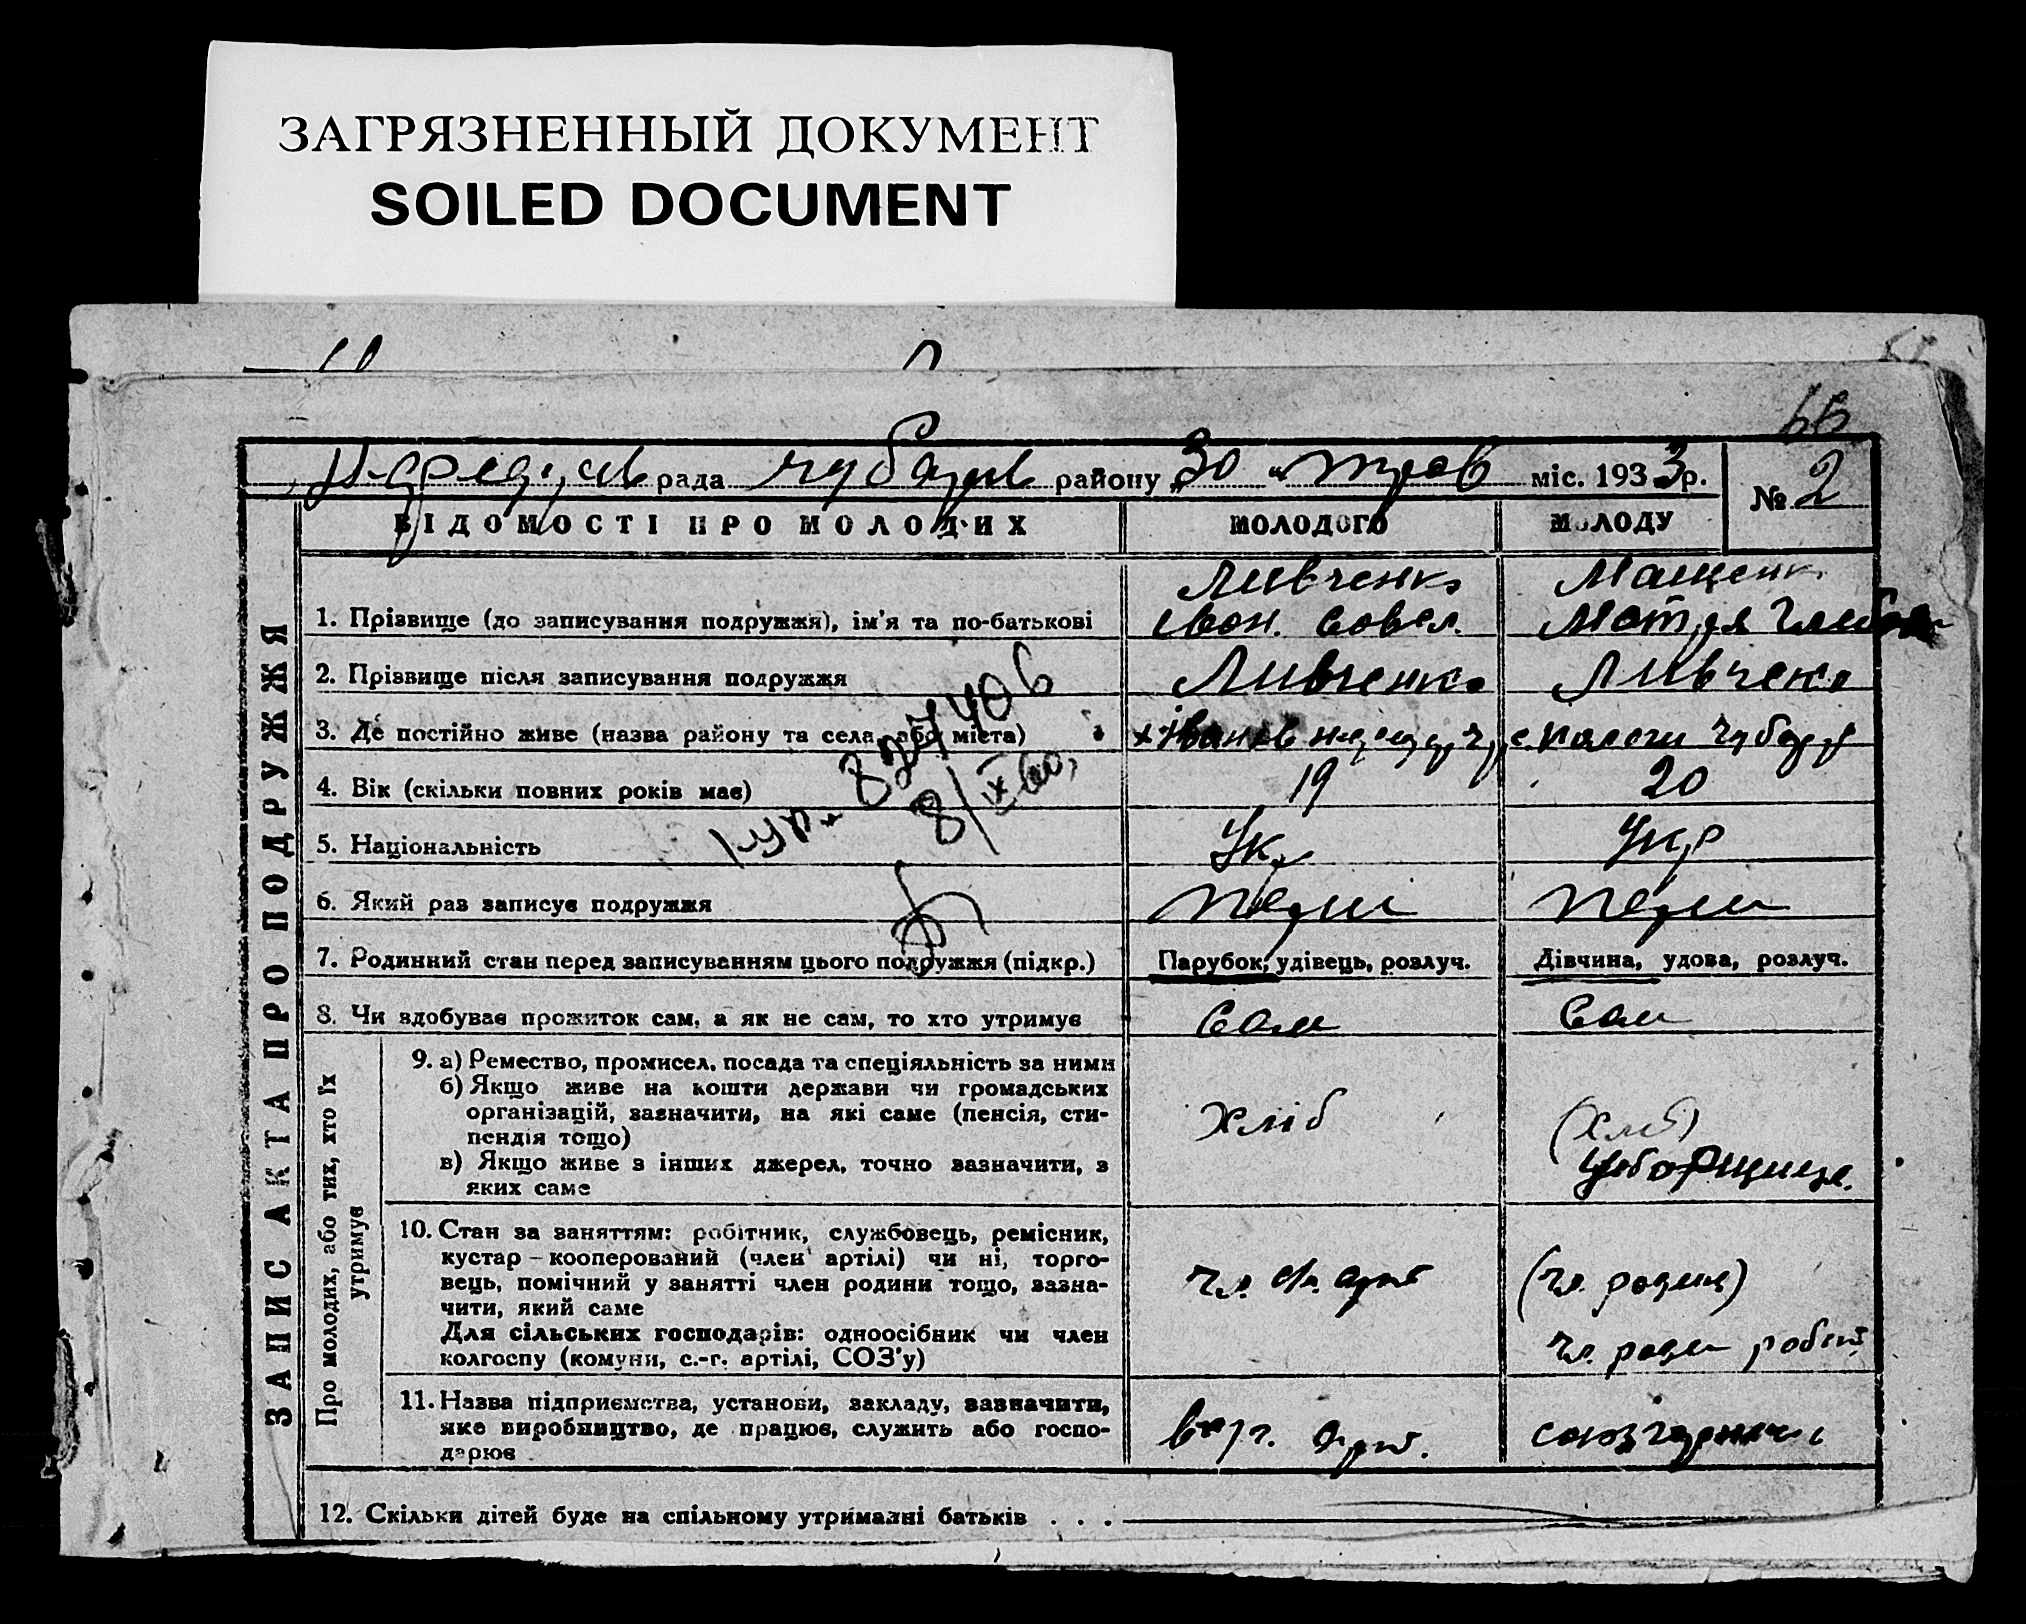 ЗАГРЯЗНЕННЫЙ ДОКУМЕНТ
SOILED DOCUMENT
66
рада район у 30 трав міс. 1933 р. № 2
ВІДОМОСТІ ПРО МОЛОДИХ МОЛОДОГО МОЛОДУ
ЗАПИС АКТА ПРО ПОДРУЖЖЯ
Ливченко
1. Прізвище (до записування подружжя), ім'я та по-батькові
2. Прізвище після записування подружжя Ливченко Ливченко
3. Де постійно живе (назва району та села, або міста)
4. Вік (скільки повних років має) 19 20
5. Національність Ук Укр
6. Який раз записує подружжя
7. Родинний стан перед записуванням цього подружжя (підкр.) Парубок, удівець, розлуч. Дівчина, удова, розлуч.
8. Чи здобуває прожиток сам, а як не сам, то хто утримує Сам Сам
Про молодих, або тих, хто їх утримує
9. а) Ремество, промисел, посада та спеціяльність за ними
б) Якщо живе на кошти держави чи громадських
організацій, зазначити, на які саме (пенсія, сти-
пендія тощо)
в) Якщо живе з інших джерел, точно зазначити, з
яких саме
хліб (хліб)
Уборщиця.
10. Стан за заняттям: робітник, службовець, ремісник,
кустар – кооперований (член артілі) чи ні, торго-
вець, помічний у занятті член родини тощо, зазна-
чити, який саме
Для сільських господарів: одноосібник чи член
колгоспу (комуни, с.-г. артілі, СОЗ'у)
чл. арт (чл. родини)
чл. роди робіт
11. Назва підприємства, установи, закладу, зазначити,
яке виробництво, де працює, служить або госпо-
дарює
арт.
12. Скільки дітей буде на спільному утриманні батьків . . .